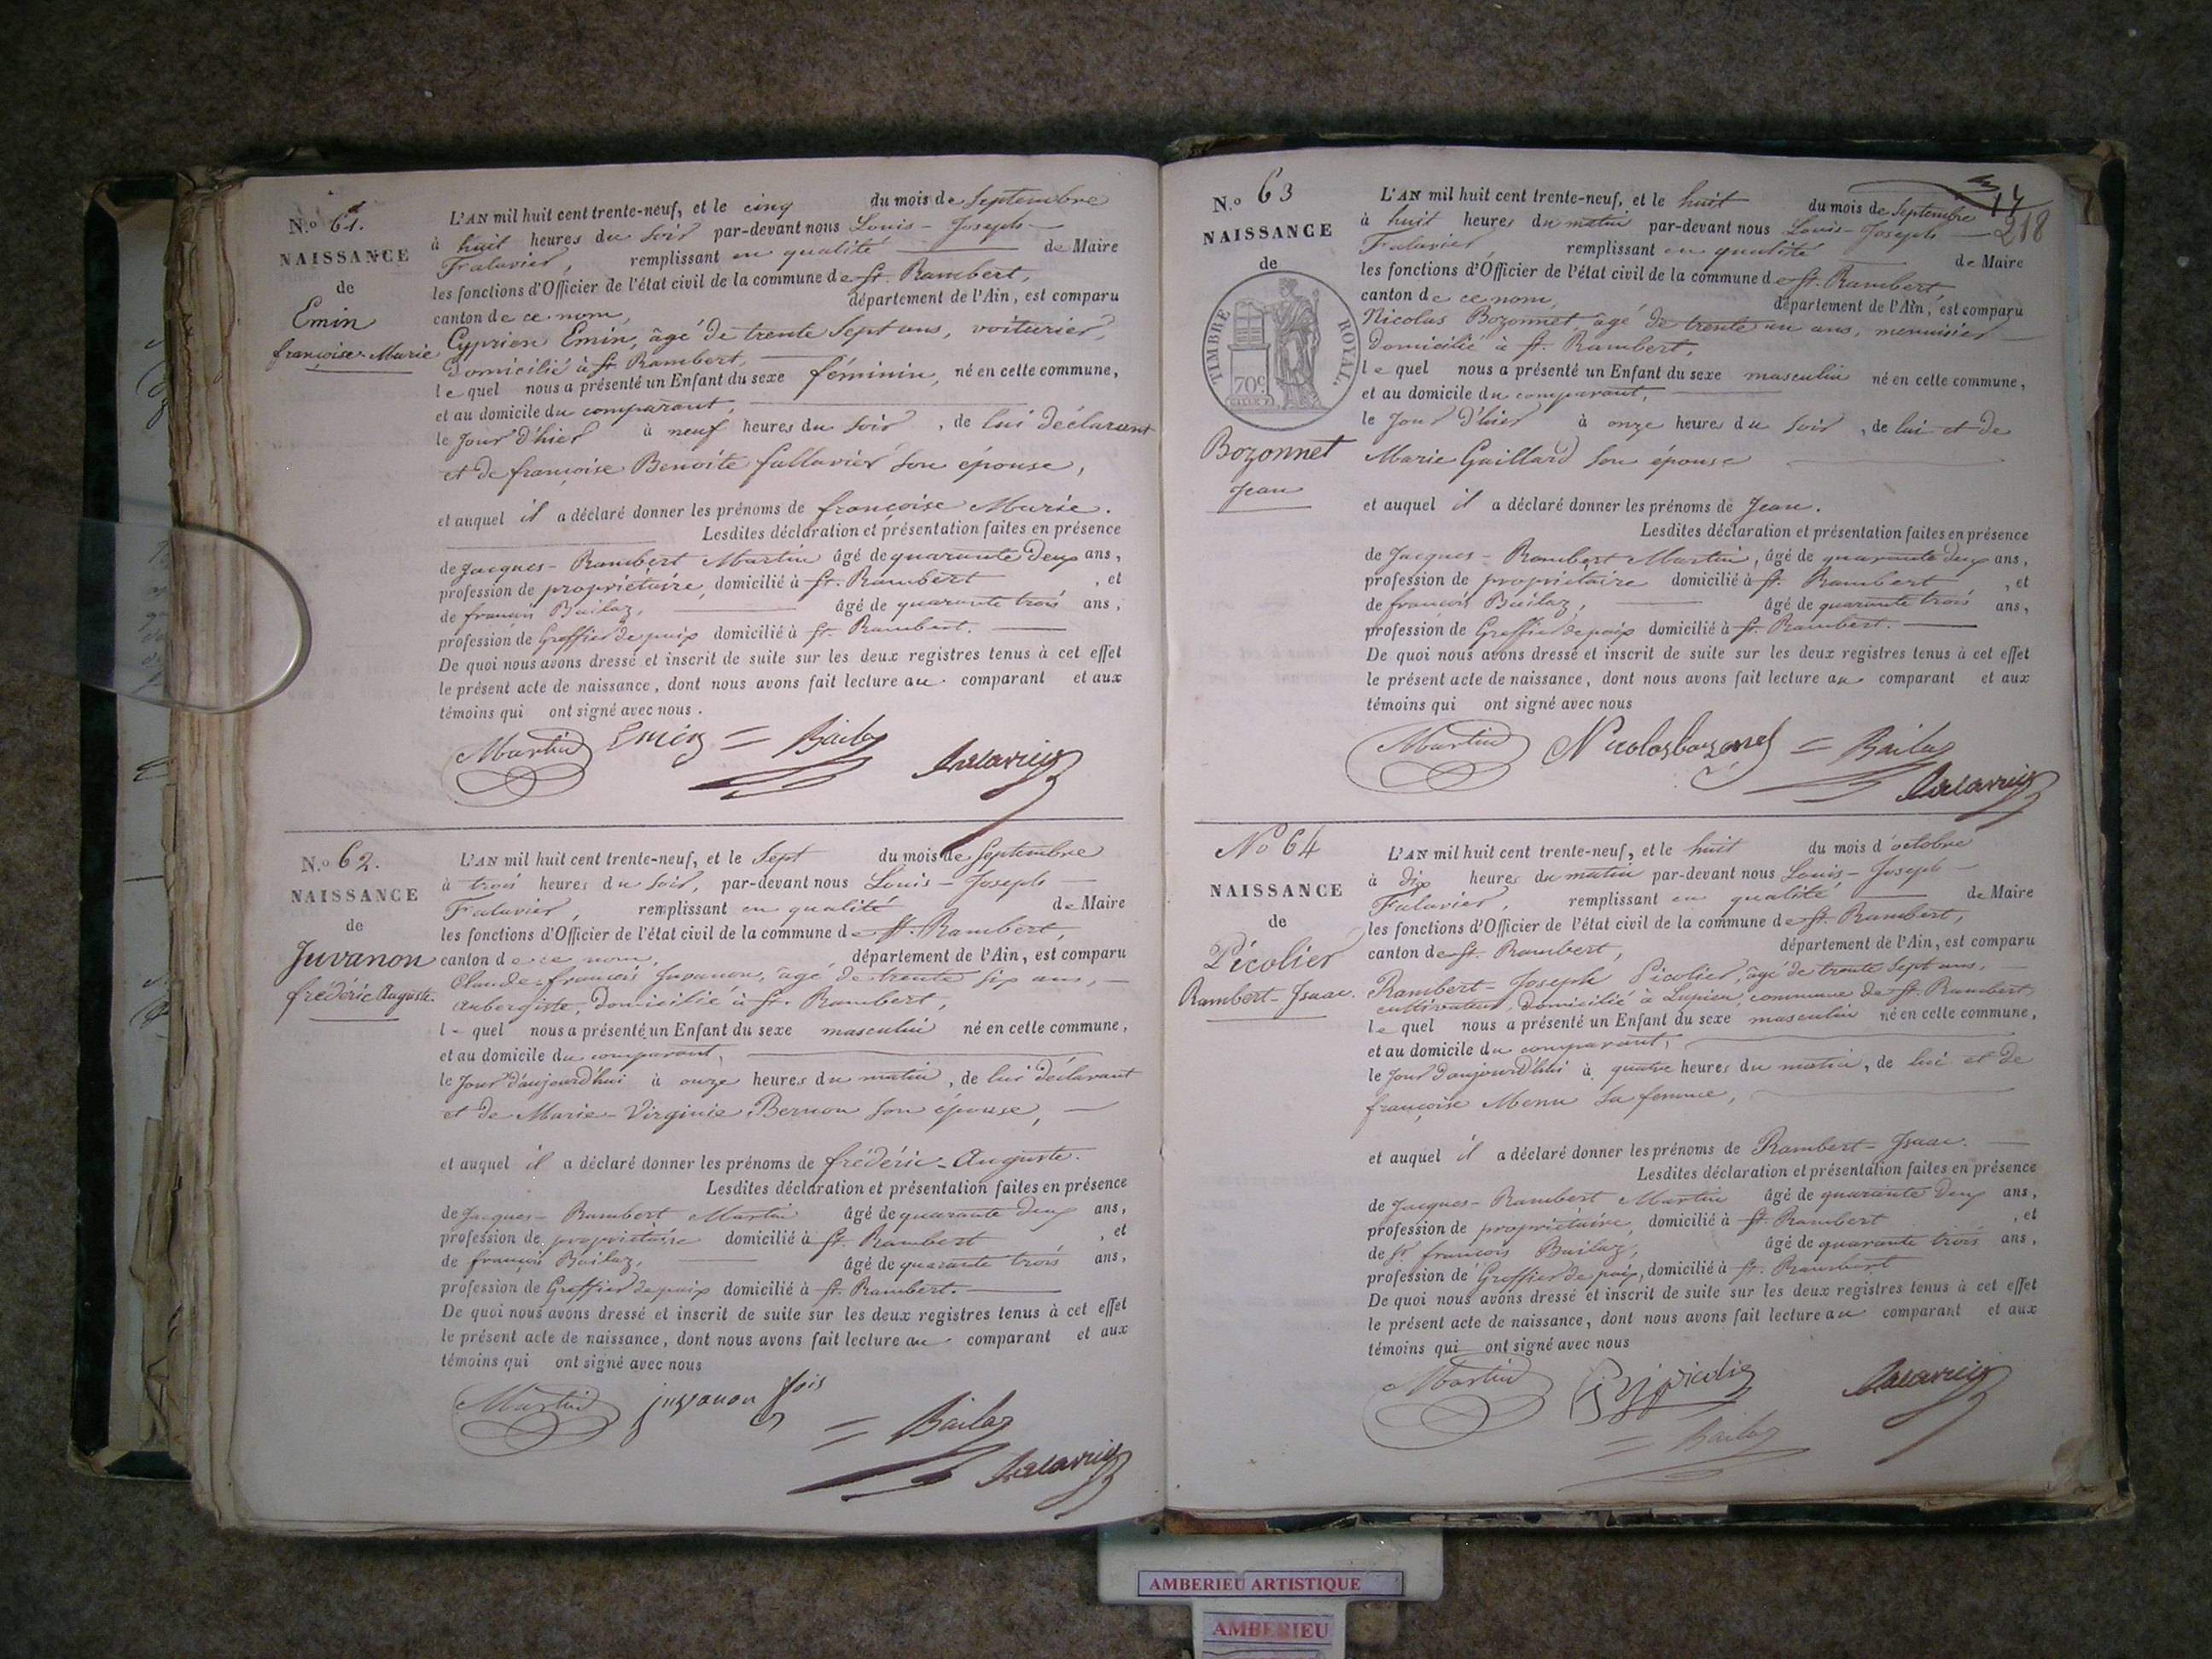 N.o 61.
NAISSANCE
de
Emin
françoise-Marie
L'AN mil huit cent trente-neuf, et le cinq du mois de Septembre
à huit heures du soir par-devant nous Louis-Joseph
Falavier, remplissant en qualité de Maire
les fonctions d'Officier de l'état civil de la commune de St. Rambert,
canton de ce nom, département de l'Ain, est comparu
Cyprien Emin, âgé de trente Sept ans, voiturier,
Domicilié à St. Rambert,
lequel nous a présenté un Enfant du sexe féminin, né en cette commune,
et au domicile du comparant,
le Jour d'hier à neuf heures du soir, de lui déclarant
et de françoise Benoite fallavier son épouse,
et auquel il a déclaré donner les prénoms de françoise Marie.
Lesdites déclaration et présentation faites en présence
de Jacques-Rambert Martin âgé de quarante deux ans,
profession de propriétaire, domicilié à St. Rambert, et
de françois Bailaz, âgé de quarante trois ans,
profession de Greffier de paix domicilié à St. Rambert.
De quoi nous avons dressé et inscrit de suite sur les deux registres tenus à cet effet
le présent acte de naissance, dont nous avons fait lecture au comparant et aux
témoins qui ont signé avec nous.
Martin Emin Bailaz Falavier
N.o 62.
NAISSANCE
de
Juvanon
frédéric Auguste.
L'AN mil huit cent trente-neuf, et le Sept du mois de Septembre
à trois heures du soir, par-devant nous Louis-Joseph
Falavier, remplissant en qualité de Maire
les fonctions d'Officier de l'état civil de la commune de St. Rambert,
canton de ce nom, département de l'Ain, est comparu
Claude-françois Juvanon, âgé de trente six ans,
aubergiste, domicilié à St. Rambert,
lequel nous a présenté un Enfant du sexe masculin né en cette commune,
et au domicile du comparant,
le Jour d'aujourd'hui à onze heures du matin, de lui déclarant
et de Marie-Virginie Bernon son épouse,
et auquel il a déclaré donner les prénoms de frédéric-Auguste.
Lesdites déclaration et présentation faites en présence
de Jacques-Rambert Martin âgé de quarante deux ans,
profession de propriétaire domicilié à St. Rambert, et
de françois Bailaz, âgé de quarante trois ans,
profession de Greffier de paix domicilié à St. Rambert.
De quoi nous avons dressé et inscrit de suite sur les deux registres tenus à cet effet
le présent acte de naissance, dont nous avons fait lecture au comparant et aux
témoins qui ont signé avec nous
Martin juvanon fois Bailaz Falavier
218
N.o 63
NAISSANCE
de
TIMBRE ROYAL.
70c
Bozonnet
Jean
L'AN mil huit cent trente-neuf, et le huit du mois de Septembre
à huit heures du matin par-devant nous Louis-Joseph
Falavier remplissant en qualité de Maire
les fonctions d'Officier de l'état civil de la commune de St. Rambert
canton de ce nom, département de l'Ain, est comparu
Nicolas Bozonnet âgé de trente un ans, menuisier
Domicilié à St. Rambert,
lequel nous a présenté un Enfant du sexe masculin né en cette commune,
et au domicile du comparant,
le Jour d'hier à onze heures du soir, de lui et de
Marie Gaillard son épouse
et auquel il a déclaré donner les prénoms de Jean.
Lesdites déclaration et présentation faites en présence
de Jacques-Rambert Martin, âgé de quarante deux ans,
profession de propriétaire domicilié à St. Rambert, et
de françois Bailaz, âgé de quarante trois ans,
profession de Greffier de paix domicilié à St. Rambert.
De quoi nous avons dressé et inscrit de suite sur les deux registres tenus à cet effet
le présent acte de naissance, dont nous avons fait lecture au comparant et aux
témoins qui ont signé avec nous
Martin Nicolas bozonnet Bailaz Falavier
No 64
NAISSANCE
de
Picolier
Rambert-Isaac.
L'AN mil huit cent trente-neuf, et le huit du mois d'octobre
à dix heures du matin par-devant nous Louis-Joseph
Falavier, remplissant en qualité de Maire
les fonctions d'Officier de l'état civil de la commune de St. Rambert,
canton de St. Rambert, département de l'Ain, est comparu
Rambert-Joseph Picolier, âgé de trente Sept ans,
cultivateur, domicilié à Lupieu, commune de St. Rambert
lequel nous a présenté un Enfant du sexe masculin né en cette commune,
et au domicile du comparant,
le Jour d'aujourd'hui à quatre heures du matin, de lui et de
françoise Menu sa femme,
et auquel il a déclaré donner les prénoms de Rambert-Isaac.
Lesdites déclaration et présentation faites en présence
de Jacques-Rambert Martin âgé de quarante deux ans,
profession de propriétaire, domicilié à St. Rambert, et
de Sr françois Bailaz, âgé de quarante trois ans,
profession de Greffier de paix, domicilié à St. Rambert
De quoi nous avons dressé et inscrit de suite sur les deux registres tenus à cet effet
le présent acte de naissance, dont nous avons fait lecture au comparant et aux
témoins qui ont signé avec nous
Martin picolier Falavier
Bailaz
AMBERIEU ARTISTIQUE
AMBERIEU